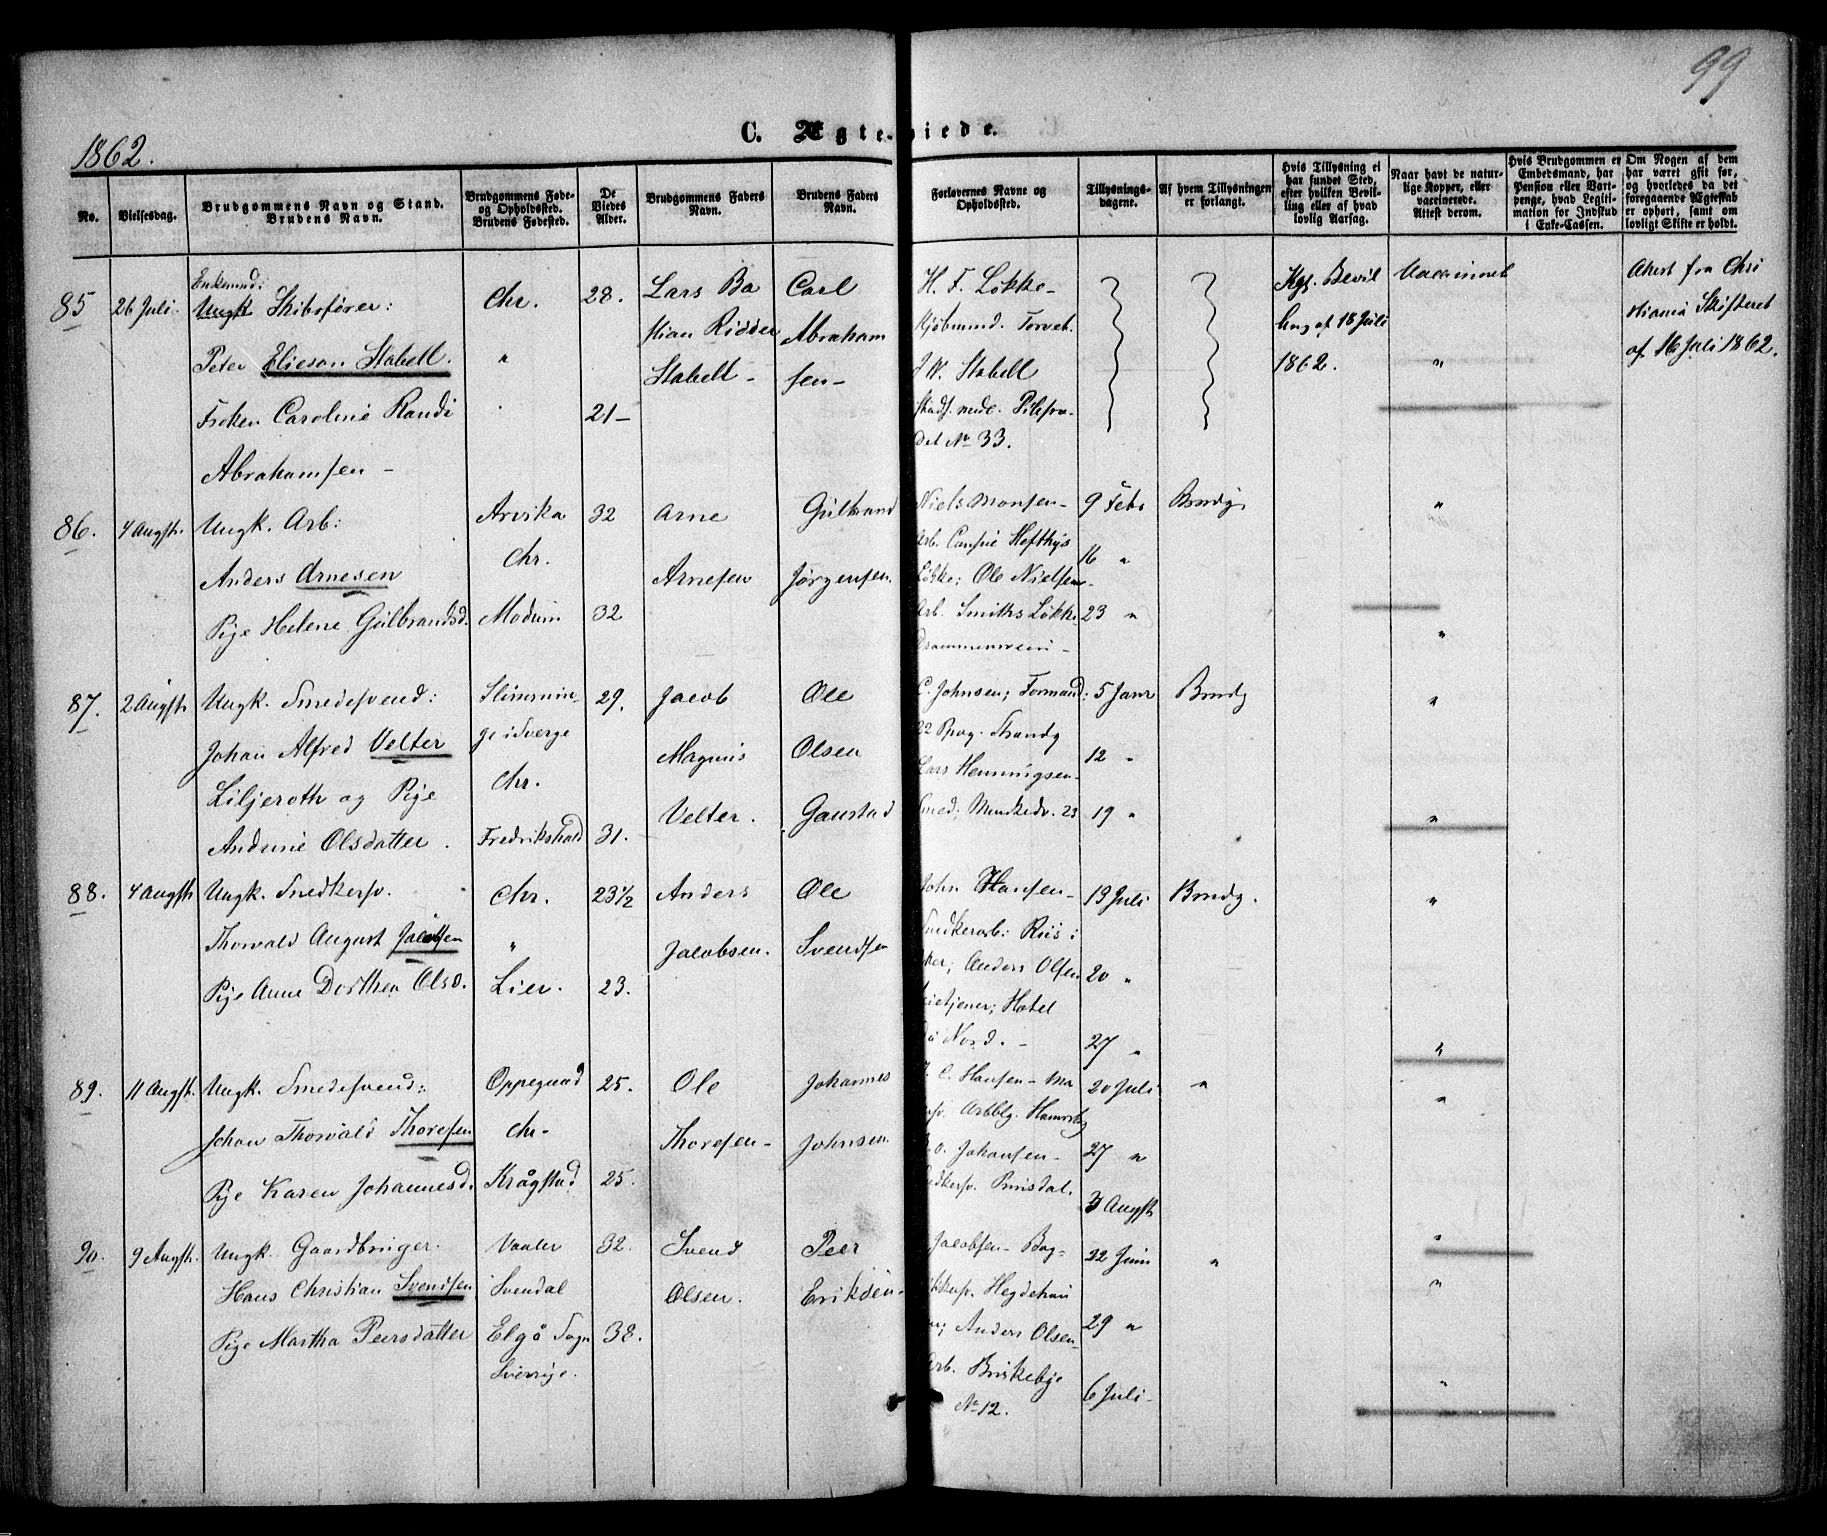 99
1862.
C. Ægteviede.
No.
Vielsesdag.
Brudgommens Navn og Stand.
Brudens Navn.
Brudgommens Føde-
og Opholdssted.
Brudens Fødested.
De
Viedes
Alder.
Brudgommens Faders
Navn.
Brudens Faders
Navn.
Forlovernes Navne og
Opholdssted.
Tillysnings-
dagene.
Af hvem Tillysningen
er forlangt.
Hvis Tillysning ei
har fundet Sted,
efter hvilken Bevil-
ling eller af hvad
lovlig Aarsag.
Naar havt de natur-
lige Kopper, eller
vaccinerede.
Attest derom.
Hvis Brudgommen er
Embedsmand, har
Pension eller Vart-
penge, hvad Legiti-
mation for Indskud
i Enke-Cassen.
Om Nogen af dem
har været gift før,
og hvorledes da det
foregaaende Ægteskab
er ophørt, samt om
lovligt Skifte er holdt.
Enkemd:
85 26 Juli. Ungk. Skibsfører: Chr. 28. Lars Ba Carl H. F. Løkke- Kgl. Bevil Vaccineret Attest fra Chri
stian Ridder Abraham Kjøbmand. Torvet. ling af 18 Juli stiania Skifteret
Peter Elieson Stabell. " Stabell - sen- J W. Stabell 1862. " af 16 Juli 1862.
Frøken Caroline Randi 21- Pilestræ
det No 33.
Abrahamsen -
86. 4 Augst. Ungk. Arb: Arvika 32 Arne Gulbrand Niels Monsen- 9 Febr Brudg. "
Chr. Arb. Hefthys 16 "
Anders Arnesen Arnesen Jørgensen. Løkke; Ole Nielsen-
Pige Helene Gulbrandsd. Modum 32 Arb. Smiths Løkke 23 " "
Drammensveien -
87. 2 Augst Ungk. Smedesvend: 29. Jacob Ole C. Johnsen; Formand: 5 Janr Brudg "
ge i Sverge 22 Strandg
Johan Alfred Velter Magnus Olsen Lars Henningsen- 12 "
Liljeroth og Pige Chr. Velter. Gaustad Smed; Munkedv. 23 19 " "
Andrine Olsdatter. Fredrikshald 31.
88. 4 Augst Ungk. Snedkersv. Chr. 23½ Anders Ole John Hansen- 13 Juli Brudg. "
Thorvald August Jacobsen " Jacobsen. Svendsen Snedkerarb: Riis:
ker; Anders Olsen 20 "
Pige Anne Dorthea Olsd. Lier. 23. Hotel
du Nord. - 27 " "
89. 11 Augst. Ungk. Smedesvend: Oppegaard 25. Ole Johannes C. Hansen- Ma 20 Juli " "
Arbbtg.
Johan Thorvald Thoresen Chr- Thoresen- Johnsen O. Johansen- 27 "
Pige Karen Johannesd. Krågstad 25. 3 Augst
90. 9 Augst. Ungk. Gaardbruger. Vaaler 32. Svend Peer Jacobsen- 22 Juni " "
Hans Christian Svendsen Svendal Olsen. Eriksen- Hegdehau "
Pige Martha Peersdatter Elgå Sogn 38. gen; Anders Olsen- 29 "
Sverrige. Arb. Briskebye 6 Juli- "
No 12.